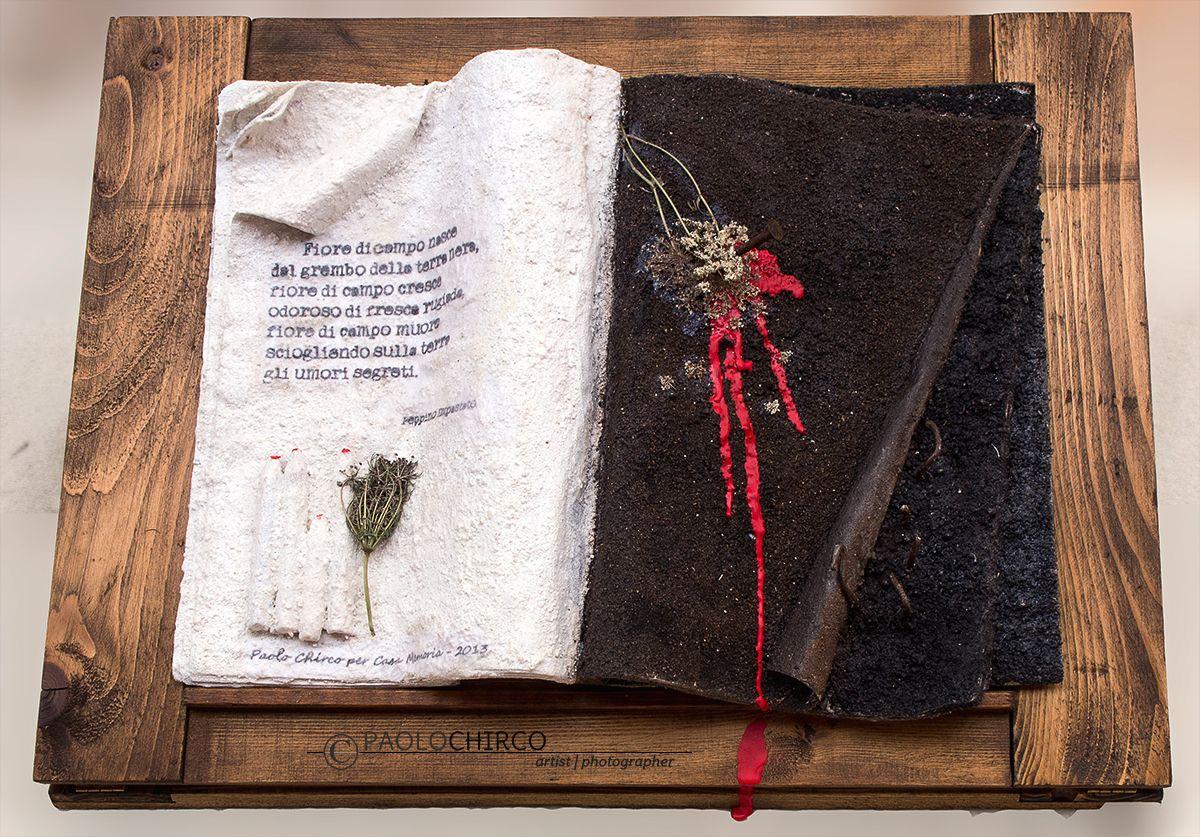 Fiore di campo nasce
dal grembo della terra nera,
fiore di campo cresce
odoroso di fresca rugiada,
fiore di campo muore
sciogliendo sulla terra
gli umori segreti.
Peppino Impastato
Paolo Chirco per Casa Memoria - 2013
© PAOLOCHIRCO
artist | photographer